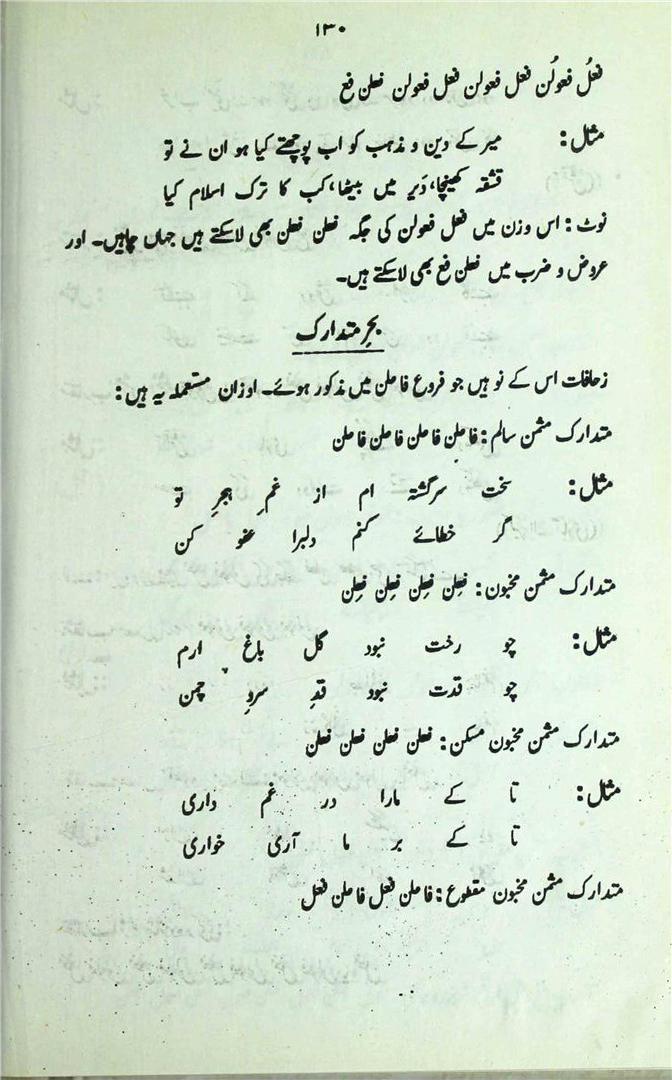 ۱۳۰
فعلُ فعولُن فعل فعولن فعل فعولن فعلن فع
مثال: میر کے دین و مذہب کو اب پوچھتے کیا ہو ان نے تو
قشقہ کھینچا، دَیر میں بیٹھا، کب کا ترک اسلام کیا
نوٹ: اس وزن میں فعل فعولن کی جگہ فعلن فعلن بھی لاسکتے ہیں جہاں چاہیں۔ اور
عروض و ضرب میں فعلن فع بھی لاسکتے ہیں۔
بحرِ متدارک
زحافات اس کے نو ہیں جو فروع فاعلن میں مذکور ہوئے۔ اوزان مستعملہ یہ ہیں:
متدارک مثمن سالم: فاعلن فاعلن فاعلن فاعلن
مثال: سخت سرگشتہ ام از غمِ ہجرِ تو
گر خطائے کنم دلبرا عفو کن
متدارک مثمن مخبون: فعِلن فعِلن فعِلن فعِلن
مثال: چو رخت نبود گل باغ ارم
چو قدت نبود قدِ سروِ چمن
متدارک مثمن مخبون مسکن: فعلن فعلن فعلن فعلن
مثال: تا کے مارا در غم داری
تا کے بر ما آری خواری
متدارک مثمن مخبون مقطوع: فاعلن فعل فاعلن فعل